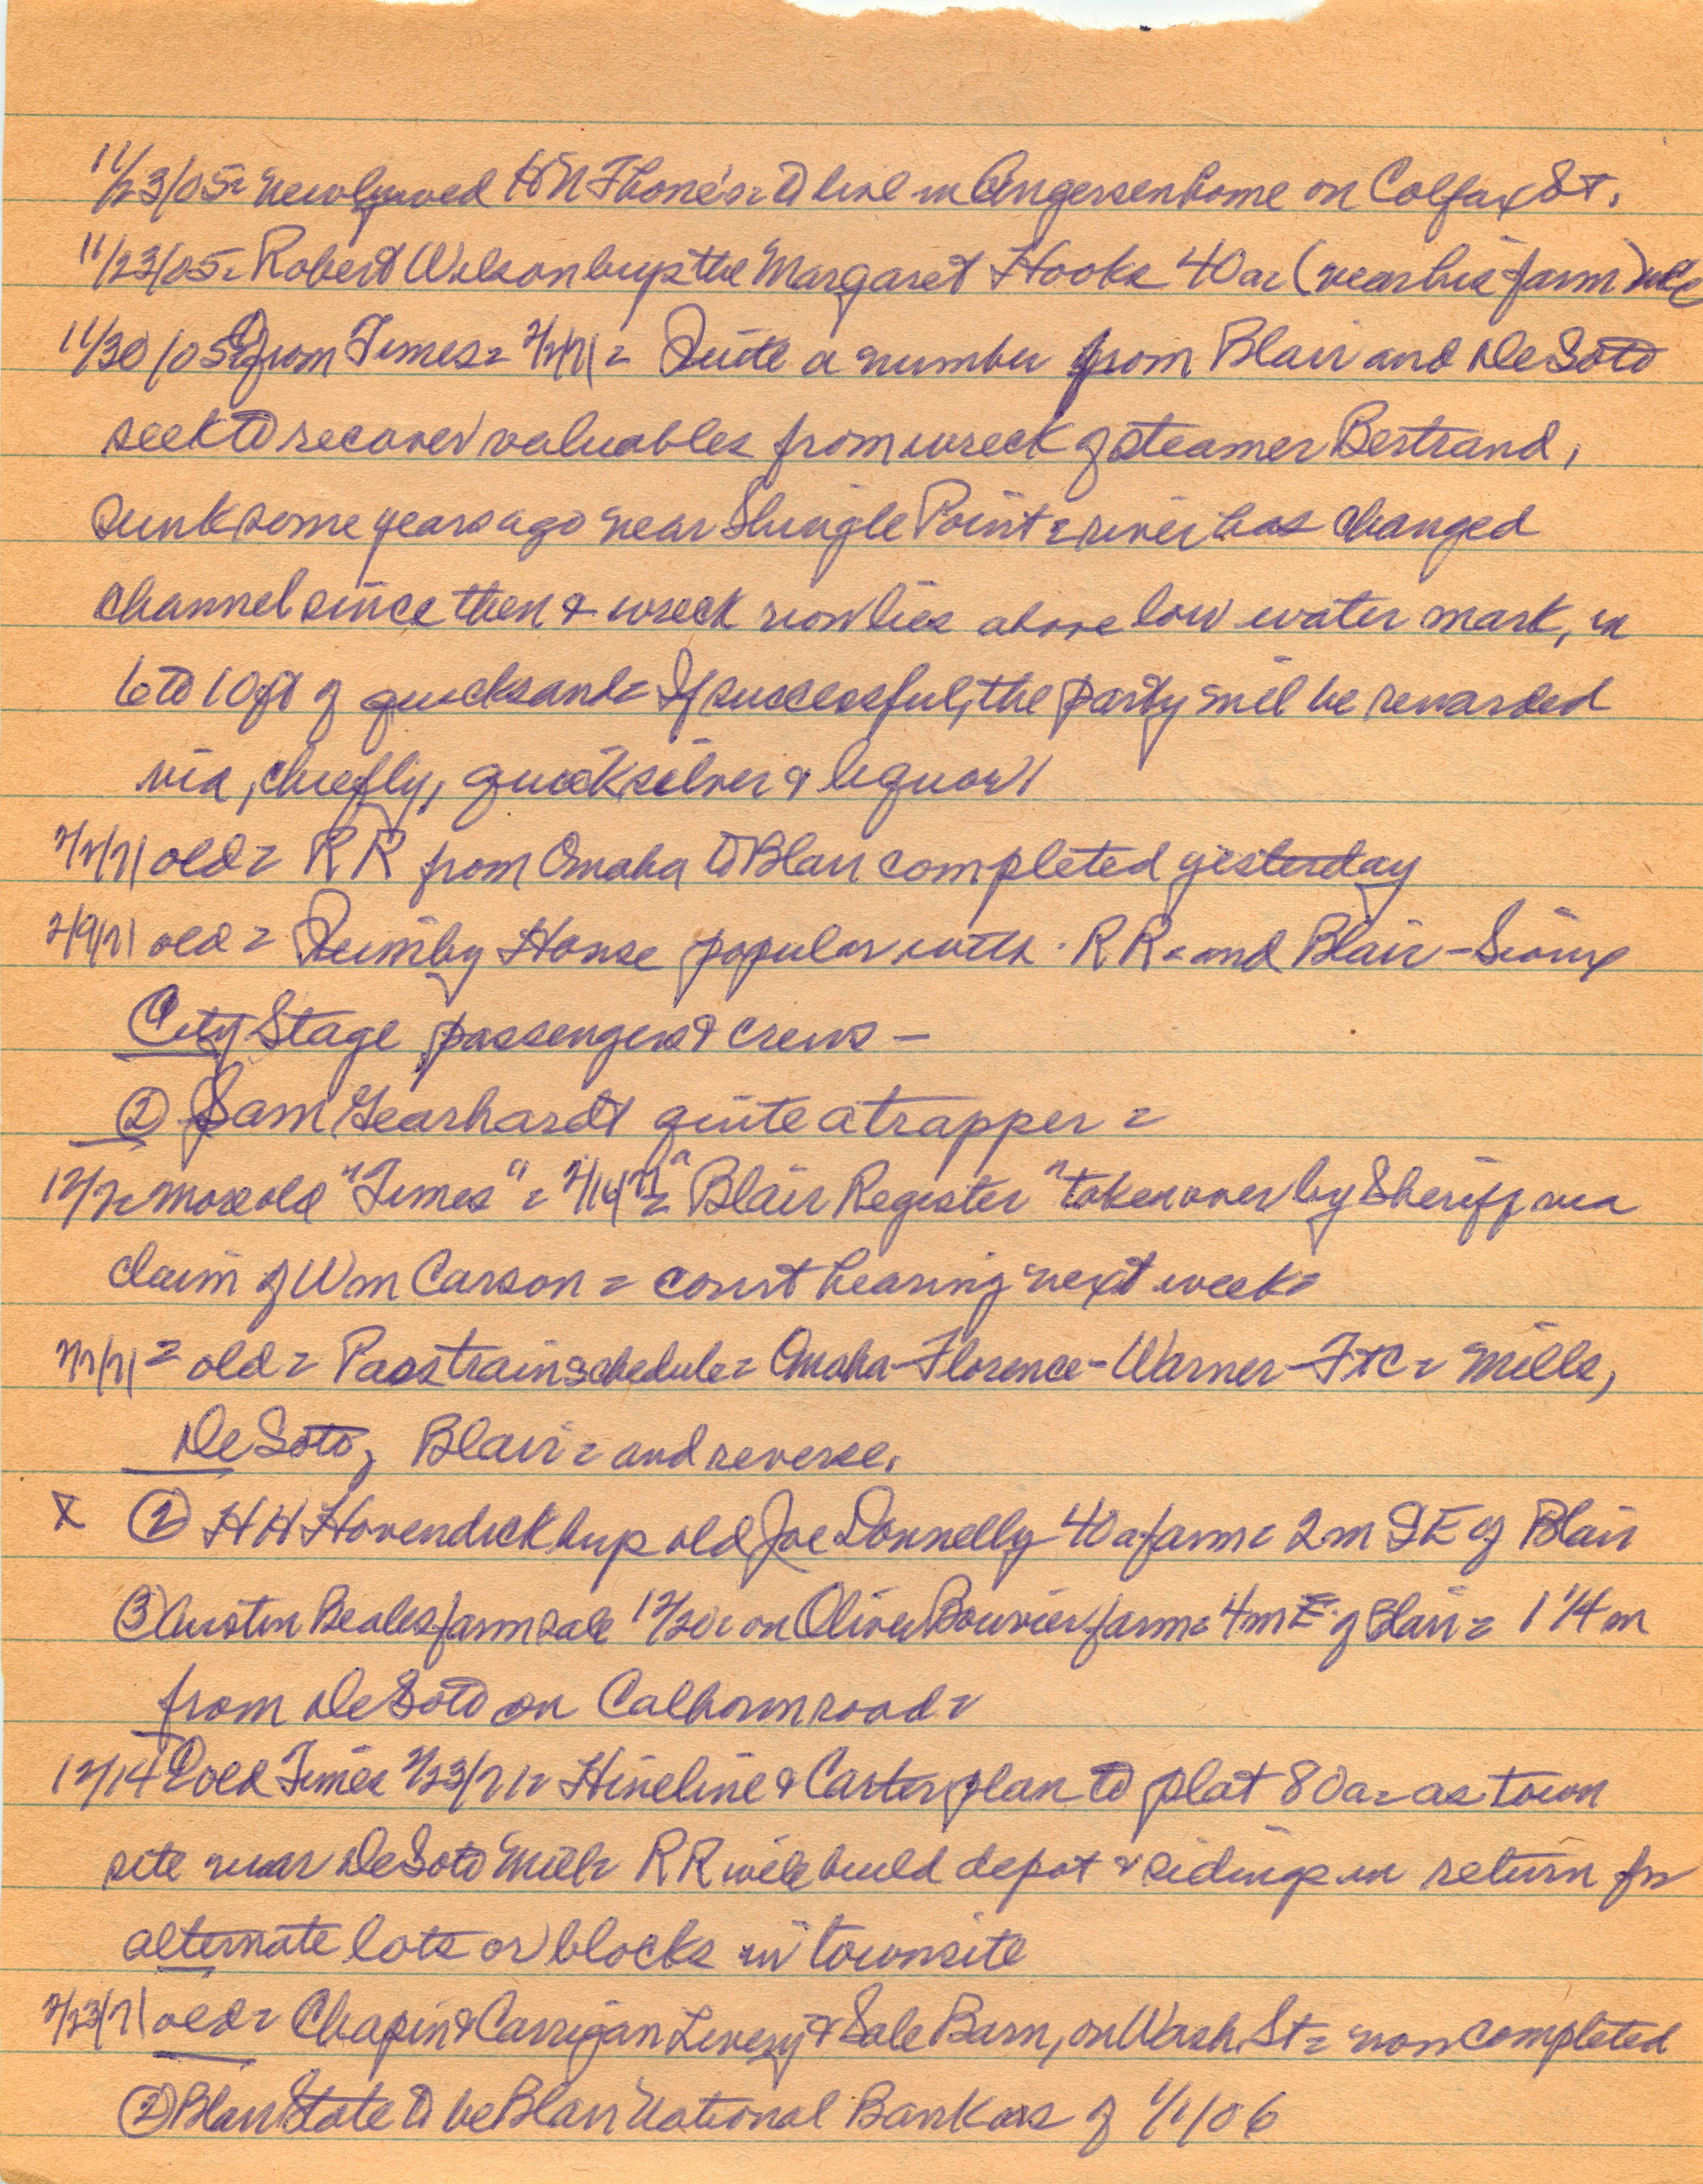 11/23/05= Newlywed HN Thone's = to live in Angersen home on Colfax St.
11/23/05= Robert Wilson buys the Margaret Hooks 40a= (near his farm)
11/30/05= from Times= 2/2/71= Quite a number from Blair and DeSoto
seek to recover valuables from wreck of steamer Bertrand,
sunk some years ago near Shingle Point = river has changed
channel since then & wreck now lies above low water mark, in
6 to 10 ft of quicksand = If successful, the party will be rewarded
via, chiefly, quicksilver & liquor!
2/2/71 old = RR from Omaha to Blair completed yesterday
2/9/71 old = Quimby House popular with RR = and Blair-Sioux
City Stage passengers & crews –
② Sam Gearhardt quite a trapper =
12/7= more old "Times" = 2/16/71= "Blair Register" taken over by Sheriff via
claim of Wm Carson = court hearing next week=
= old = Pass train schedule = Omaha-Florence-Warner-Ft C = Mills,
DeSoto, Blair = and reverse.
X ② HH Hovendick buys old Joe Donnelly 40a farm = 2m SE of Blair
③ Austin Beales farm sale 12/20= on Oliver Bouvier farm= 4m E of Blair = 1 1/4 m
from DeSoto on Calhoun road=
12/14 old Times 2/23/71= Hineline & Carter plan to plat 80a= as town
site near DeSoto Mill= RR will build depot & sidings in return for
alternate lots or blocks in townsite
2/23/71 old = Chapin & Carrigan Livery & Sale Barn, on Wash. St = now completed
② Blair State to be Blair National Bank as of 1/1/06